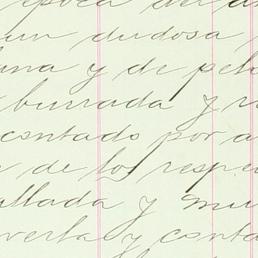 epoca del
un dudosa
una y de pelo
burrada y
contado por a
de los respe
allada y mu
verta y conta